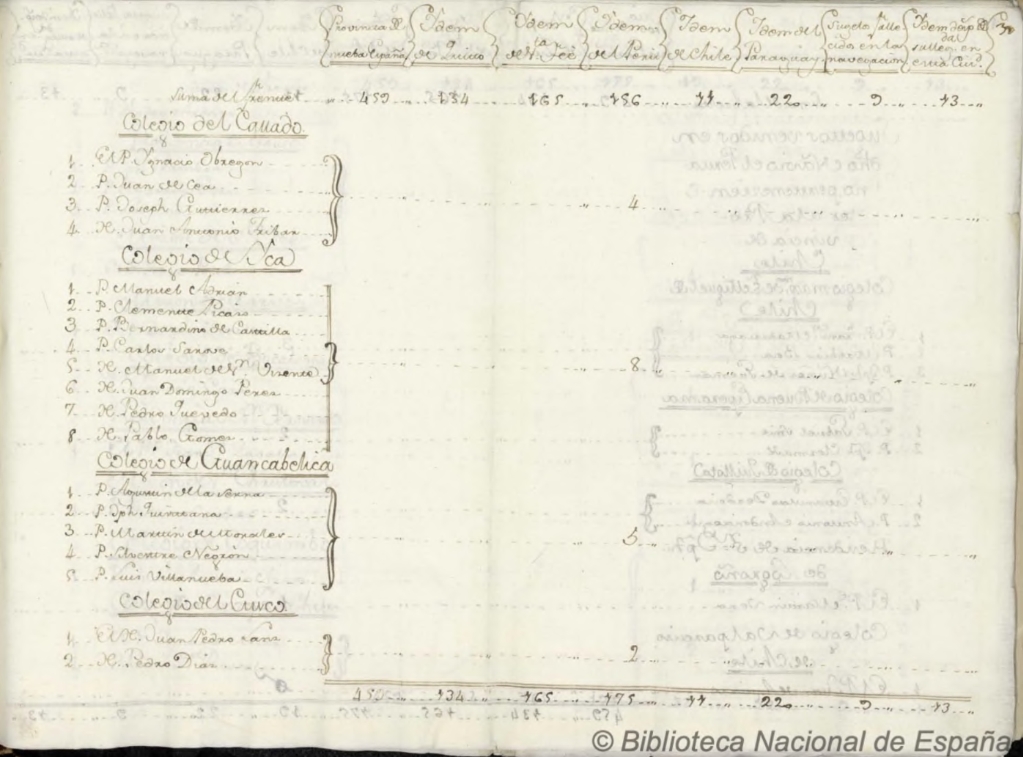 Provincia de nueba España Ydem de Quito Ydem de Sta. Feè Ydem del Perú Ydem de Chile Ydem del Paraguay Sugetos falle cidos en la navegacion Ydem en esta Ciu.d
Suma del frente 459 134 165 156 11 22 9 13
Colegio del Callado
1 El P. Ygnacio Obregon
2 P. Juan de Cea
3 P. Joseph Gutierrez 4
4 H. Juan Antonio Iribar
Colegio de Yca
1 P. Manuel Adrian
2 P. Clemente Picazo
3 P. Bernardino de Castilla
4 P. Carlos
5 H. Manuel de Sn. Vizente 8
6 H. Juan Domingo Perez
7 H. Pedro Quevedo
8 H. Pablo Gomez
Colegio de Guancabelica
1 P. Agustin de la Serna
2 P. Jph Quintana
3 P. Martin de Morales 5
4 P. Silvestre Negron
5 P. Luis Villanueba
Colegio del Cuzco
1 El H. Juan Pedro Sanz
2 H. Pedro Diaz 2
459 134 165 175 11 22 9 13
© Biblioteca Nacional de España